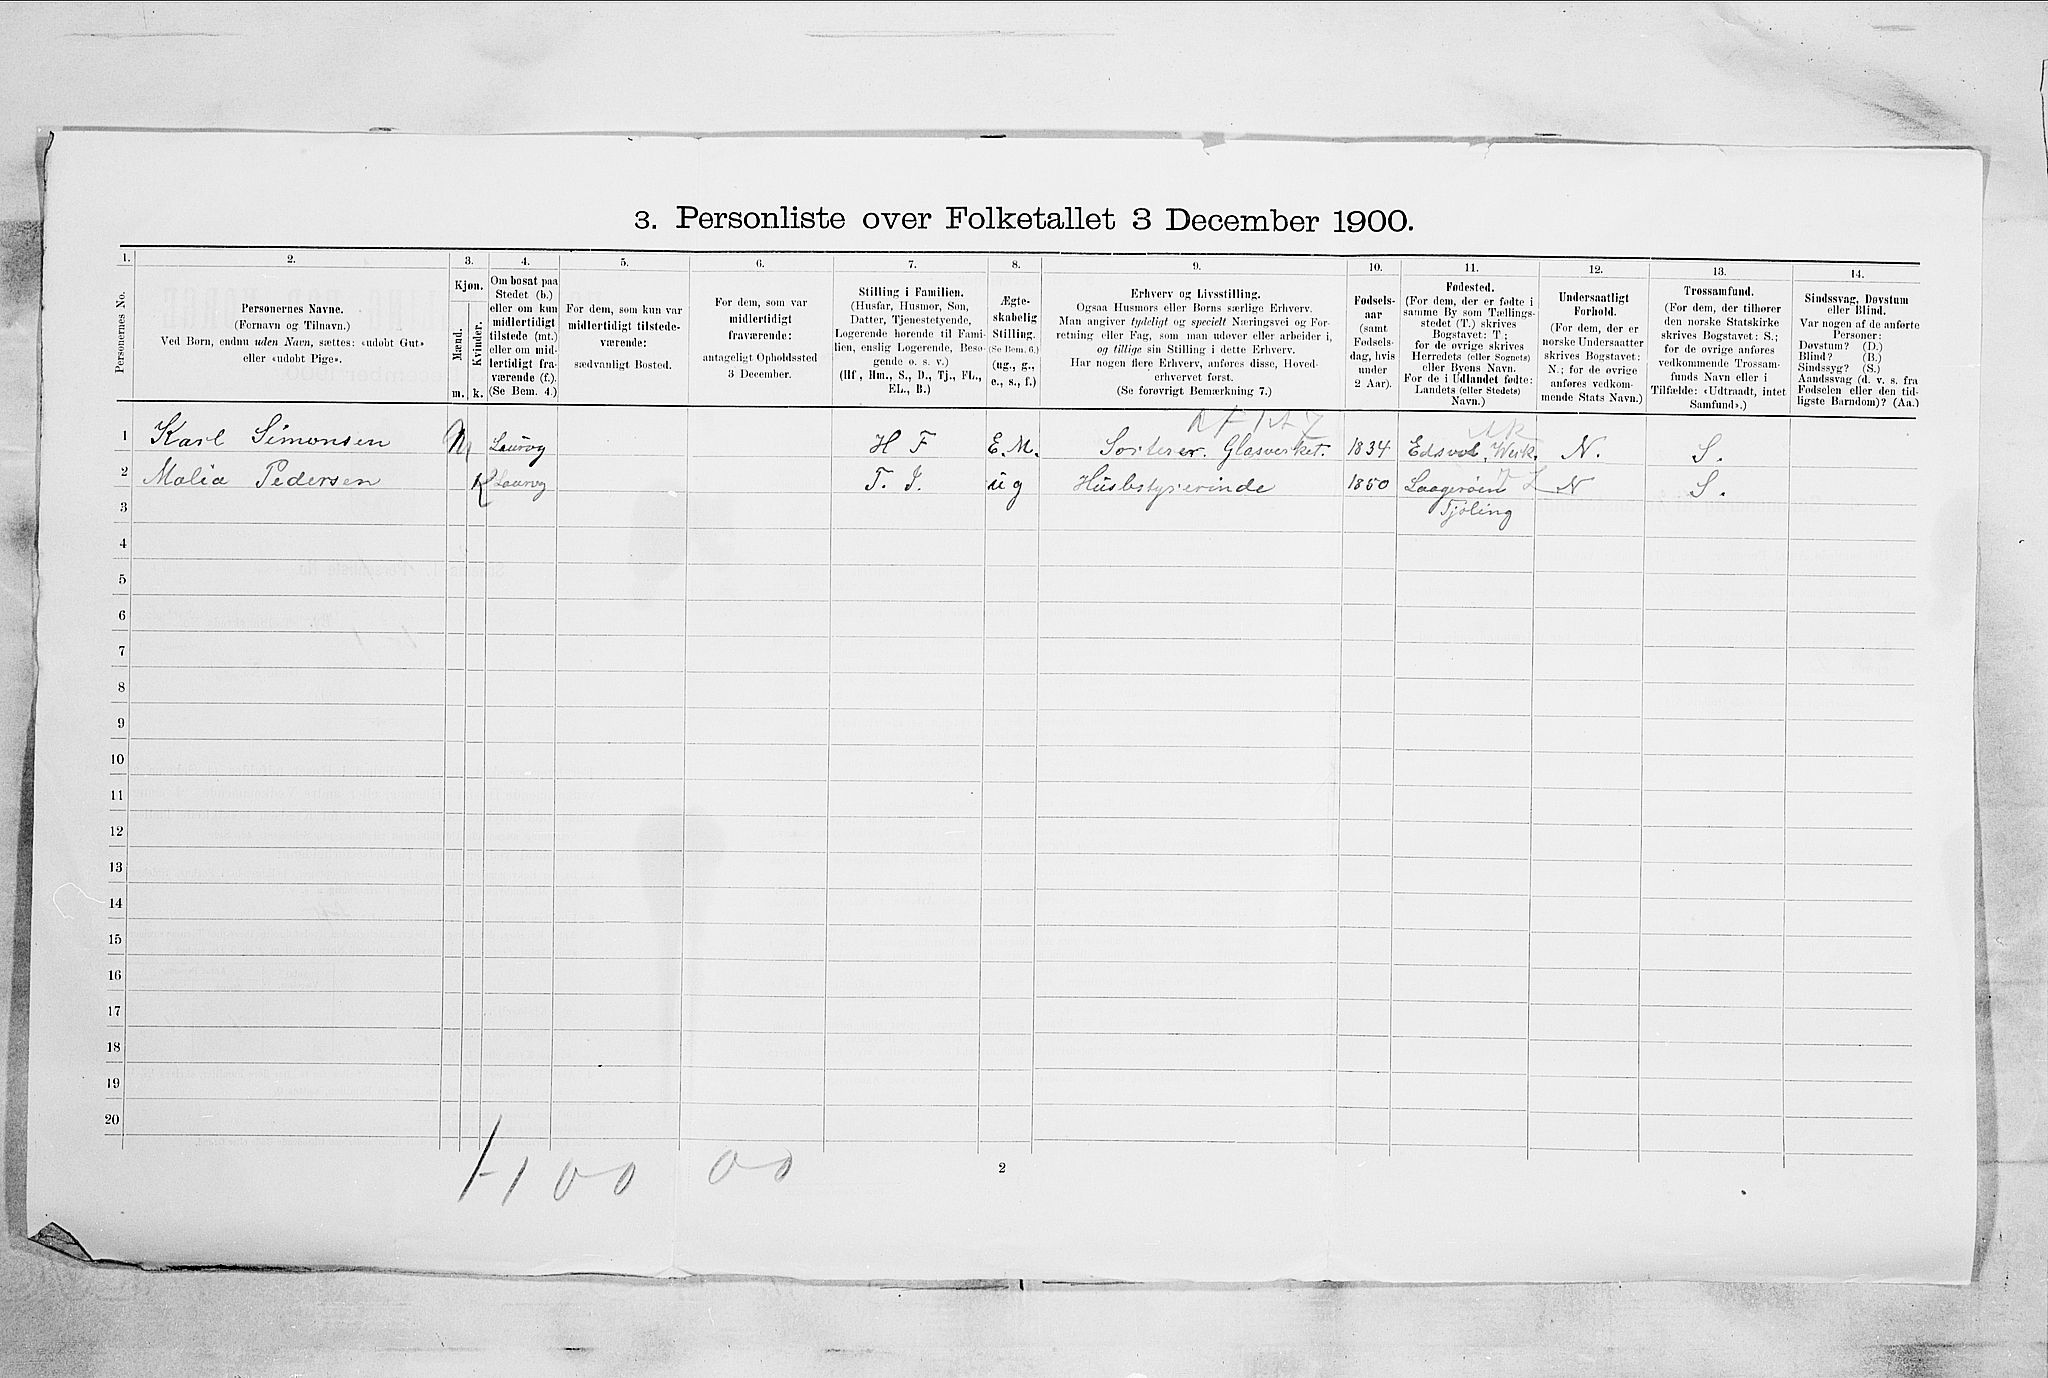 3. Personliste over Folketallet 3 December 1900.
1. 2. 3. 4. 5. 6. 7. 8. 9. 10. 11. 12. 13. 14.
Personernes No.
Personernes Navne.
(Fornavn og Tilnavn.)
Ved Børn, endnu uden Navn, sættes: «udøbt Gut»
eller «udøbt Pige».
Kjøn.
Mænd.
Kvinder.
m. k.
Om bosat paa
Stedet (b.)
eller om kun
midlertidigt
tilstede (mt.)
eller om mid-
lertidigt fra-
værende (f.).
(Se Bem. 4.)
For dem, som kun var
midlertidigt tilstede-
værende:
sædvanligt Bosted.
For dem, som var
midlertidigt
fraværende:
antageligt Opholdssted
3 December.
Stilling i Familien.
(Husfar, Husmor, Søn,
Datter, Tjenestetyende,
Logerende hørende til Fami-
lien, enslig Logerende, Besø-
gende o. s. v.)
(Hf., Hm., S., D., Tj., FL.,
EL., B.)
Ægte-
skabelig
Stilling.
(Se Bem. 6.)
(ug., g.,
e., s., f.)
Erhverv og Livsstilling.
Ogsaa Husmors eller Børns særlige Erhverv.
Man angiver tydeligt og specielt Næringsvei og For-
retning eller Fag, som man udøver eller arbeider i,
og tillige sin Stilling i dette Erhverv.
Har nogen flere Erhverv, anføres disse, Hoved-
erhvervet først.
(Se forøvrigt Bemærkning 7.)
Fødsels-
aar
(samt
Fødsels-
dag, hvis
under
2 Aar).
Fødested.
(For dem, der er fødte i
samme By som Tællings-
stedet (T.) skrives
Bogstavet: T;
for de øvrige skrives
Herredets (eller Sognets)
eller Byens Navn.
For de i Udlandet fødte:
Landets (eller Stedets)
Navn.)
Undersaatligt
Forhold.
(For dem, der er
norske Undersaatter
skrives Bogstavet:
N.; for de øvrige
anføres vedkom-
mende Stats Navn.)
Trossamfund.
(For dem, der tilhører
den norske Statskirke
skrives Bogstavet: S.;
for de øvrige anføres
vedkommende Trossam-
funds Navn eller i
Tilfælde: «Udtraadt, intet
Samfund».)
Sindssvag, Døvstum
eller Blind.
Var nogen af de anførte
Personer:
Døvstum? (D.)
Blind? (B.)
Sindssyg? (S.)
Aandssvag (d. v. s. fra
Fødselen eller den tid-
ligste Barndom)? (Aa.)
1 Karl Simonsen M Laurvg H F E. M. Sorterer. Glasverket. 1834 Edsvol. Werk. N. S.
2 Malia Pedersen K Laurvg T. J. ug Husbstyrerinde 1850 Laagerøen N S.
3 Tjöling
4
5
6
7
8
9
10
11
12
13
14
15
16
17
18
19
20
1 00 00
2